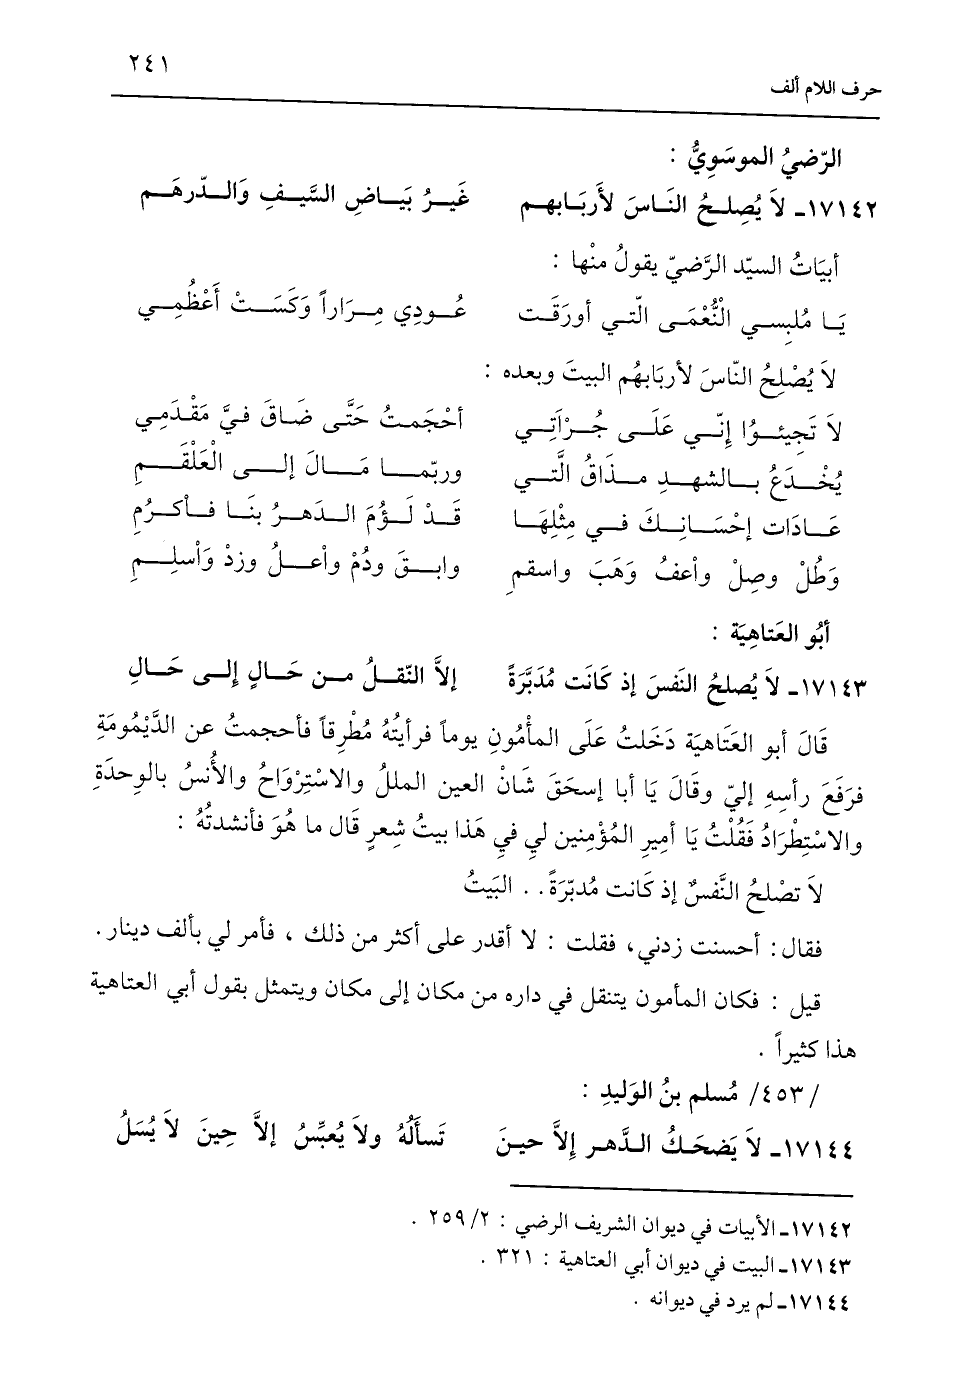 ٢٤١
حرف اللام ألف
الرّضيُ الموسَوِيُّ :
١٧١٤٢ـ لاَ يُصِلحُ النَاسَ لأَربَابهم غَيرُ بَيَاضِ السَّيفِ وَالدّرهَم
أبيَاتُ السيّد الرَّضيّ يقولُ منْها :
يَا مُلبِسي النُّعْمَى الّتي أورَقَت عُودِي مِرَاراً وَكَسَتْ أَعْظُمِي
لاَ يُصْلِحُ النّاسَ لأربَابهُم البيتَ وبعده :
لاَ تَجيئوُا إنّي عَلَى جُرْأَتِي أحْجَمتُ حَتَّى ضَاقَ فيَّ مَقْدَمِي
يُخْدَعُ بالشهدِ مذَاقُ الَّتي وربّما مَالَ إلى الْعَلْقَمِ
عَادَات إحْسَانِكَ في مِثْلِهَا قَدْ لَؤُمَ الدهرُ بنَا فأكرُمِ
وَطُلْ وصِلْ وأعفُ وَهَبَ واسقمِ وابقَ ودُمْ وأعلُ وزدْ وَأسلِمِ
أبُو العَتاهِيَة :
١٧١٤٣ـ لاَ يُصلحُ النَفسَ إذ كَانَت مُدَبَّرَةً إلاَّ النّقلُ من حَالٍ إلى حَالِ
قَالَ أبو العَتَاهية دَخَلتُ عَلَى المأْمُونِ يوماً فرأيتُهُ مُطْرِقاً فأحجمتُ عن الدَّيْمُومَةِ
فرَفَعَ رأسِهِ إليّ وقَالَ يَا أبا إسحَقَ شَانْ العين المللُ والاسْتِرْوَاحُ والأُنسُ بالوِحدَةِ
والاسْتِطْرَادُ فَقُلْتُ يَا أميرِ المُؤْمِنين لي في هَذا بيتُ شِعرٍ قَال ما هُوَ فأنشدتُهُ :
لاَ تصْلحُ النَّفسٌ إذ كَانت مُدبّرَةً . . البَيتُ
فقال: أحسنت زدني، فقلت : لا أقدر على أكثر من ذلك ، فأمر لي بألف دينار.
قيل : فكان المأمون يتنقل في داره من مكان إلى مكان ويتمثل بقول أبي العتاهية
هذا كثيراً .
/٤٥٣/ مُسلم بنُ الوَليدِ :
١٧١٤٤ـ لاَ يَضحَكُ الدَّهر إلاَّ حينَ تَسأَلُهُ ولاَ يُعبِّسُ إلاَّ حِينَ لاَ يُسَلُ
١٧١٤٢ـ الأبيات في ديوان الشريف الرضي : ٢٥٩/٢ .
١٧١٤٣ـ البيت في ديوان أبي العتاهية : ٣٢١ .
١٧١٤٤ـ لم يرد في ديوانه .